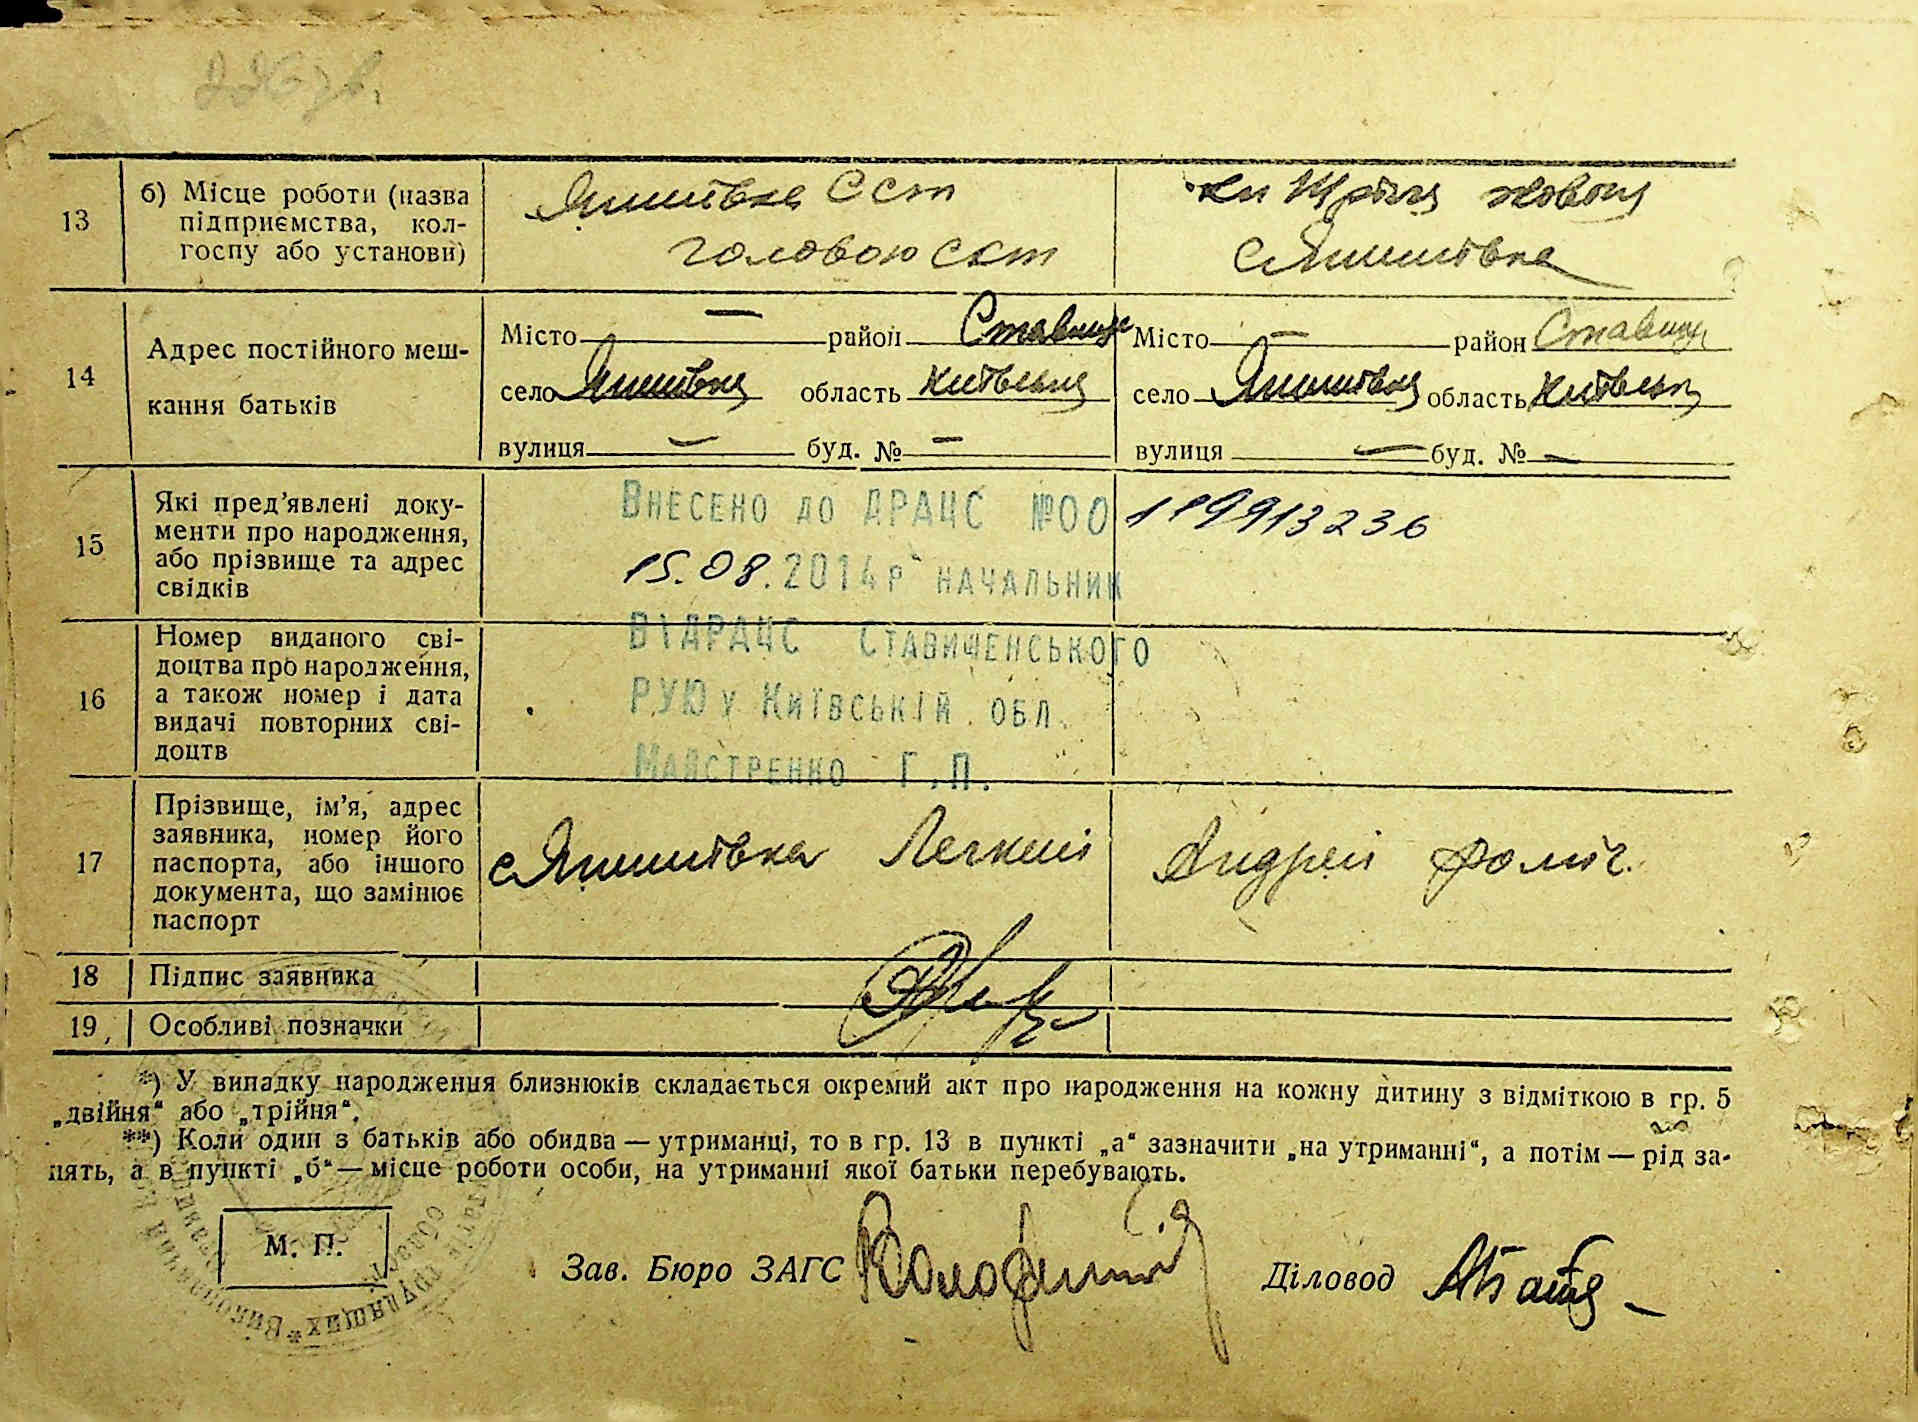 13
б) Місце роботи (назва
підприємства, кол-
госпу або установи)
Яшитвка Сст
головою сст
с Яшитвка
14
Адрес постійного меш-
кання батьків
Місто — район Ставищ
село область Київська
вулиця — буд. № —
Місто — район Ставищ
село область Київськ
вулиця — буд. № —
15
Які пред’явлені доку-
менти про народження,
або прізвище та адрес
свідків
Внесено до ДРАЦС №00 119913236
15.08.2014р начальник
ВІДРАЦС Ставищенського
РУЮ у Київській обл.
Майстренко Г.П.
16
Номер виданого сві-
доцтва про народження,
а також номер і дата
видачі повторних сві-
доцтв
17
Прізвище, ім’я, адрес
заявника, номер його
паспорта, або іншого
документа, що замінює
паспорт
Легкий Андрей
18 Підпис заявника
19, Особливі позначки
*) У випадку народження близнюків складається окремий акт про народження на кожну дитину з відміткою в гр. 5
„двійня“ або „трійня“.
**) Коли один з батьків або обидва — утриманці, то в гр. 13 в пункті „а“ зазначити „на утриманні“, а потім — рід за-
нять, а в пункті „б“ — місце роботи особи, на утриманні якої батьки перебувають.
М. П.
Зав. Бюро ЗАГС
Діловод